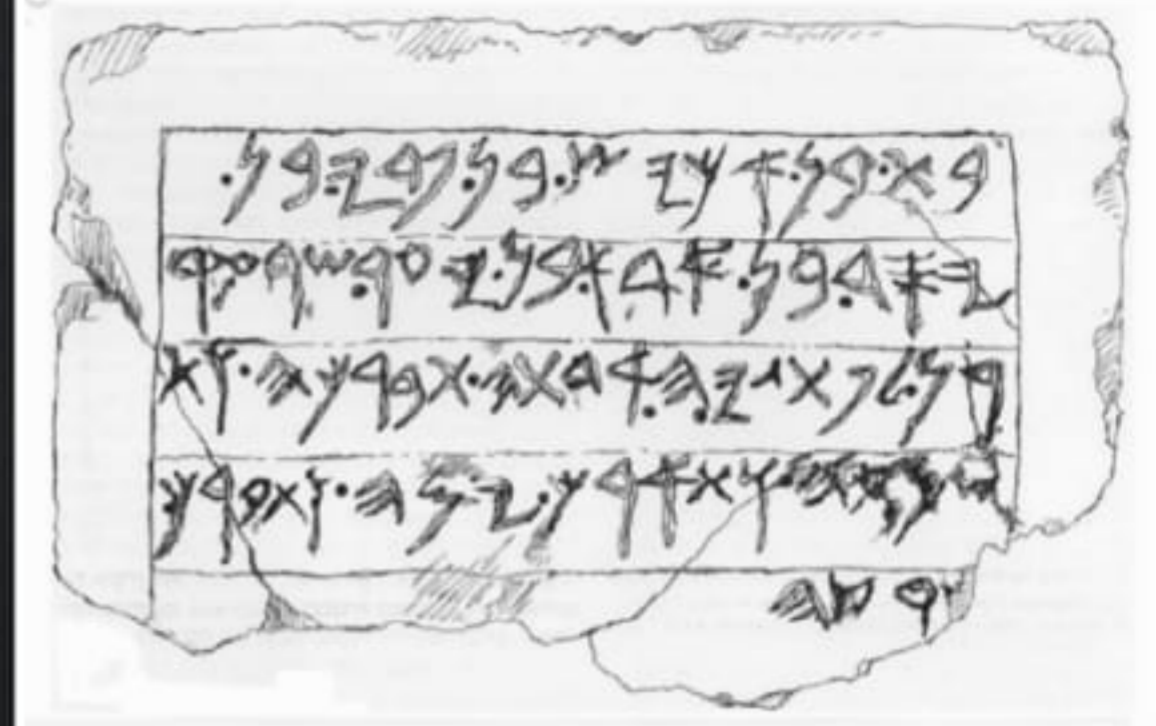 𐤁𐤕.𐤁𐤍.𐤀𐤊𐤉𐤔.𐤁𐤍.𐤐𐤃𐤉.𐤁𐤍.
𐤉𐤎𐤃.𐤁𐤍.𐤀𐤃𐤀.𐤁𐤍.𐤉𐤏𐤓.𐤔𐤓𐤏𐤒
𐤓𐤍.𐤋𐤐𐤕𐤂𐤉𐤄.𐤀𐤃𐤕𐤄.𐤕𐤁𐤓𐤊𐤄.𐤅𐤕
𐤅𐤕𐤀𐤓𐤊.𐤉𐤌𐤄.𐤅𐤕𐤁𐤓𐤊
𐤓𐤑𐤄